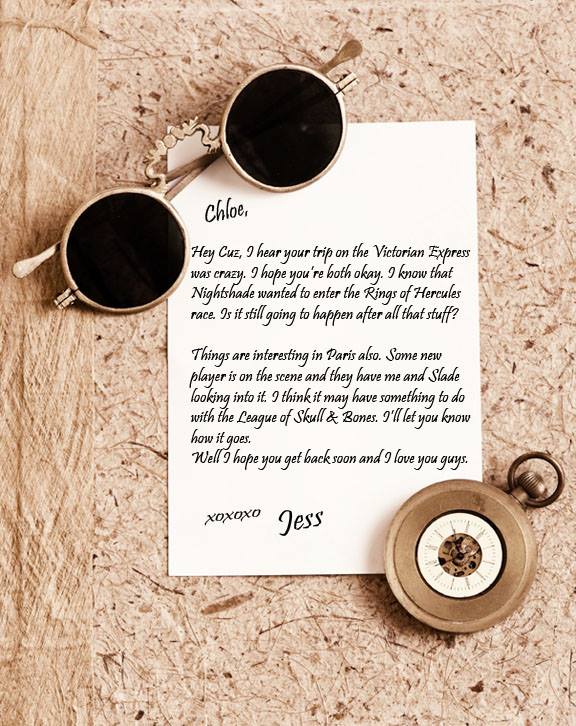 Chloe,
Hey Cuz, I hear your trip on the Victorian Express
was crazy. I hope you're both okay. I know that
Nightshade wanted to enter the Rings of Hercules
race. Is it still going to happen after all that stuff?
Things are interesting in Paris also. Some new
player is on the scene and they have me and Slade
looking into it. I think it may have something to do
with the League of Skull & Bones. I'll let you know
how it goes.
Well I hope you get back soon and I love you guys.
xoxoxo Jess